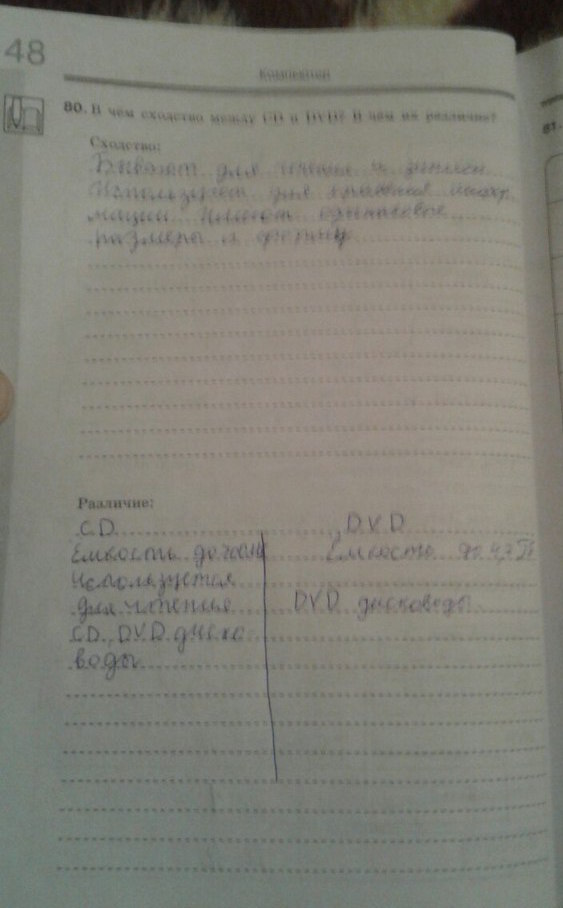 48
Компьютер
80. В чём сходство между CD и DVD? В чём их различие?
81.
Сходство:
Бывают для чтения и записи
Используют для хранения инфор
мации имеют одинаковые
размеры и форму
Различие:
CD DVD
Емкость до Емкость до 4,7
Используется
для чтения DVD дисководы
CD, DVD диско
воды